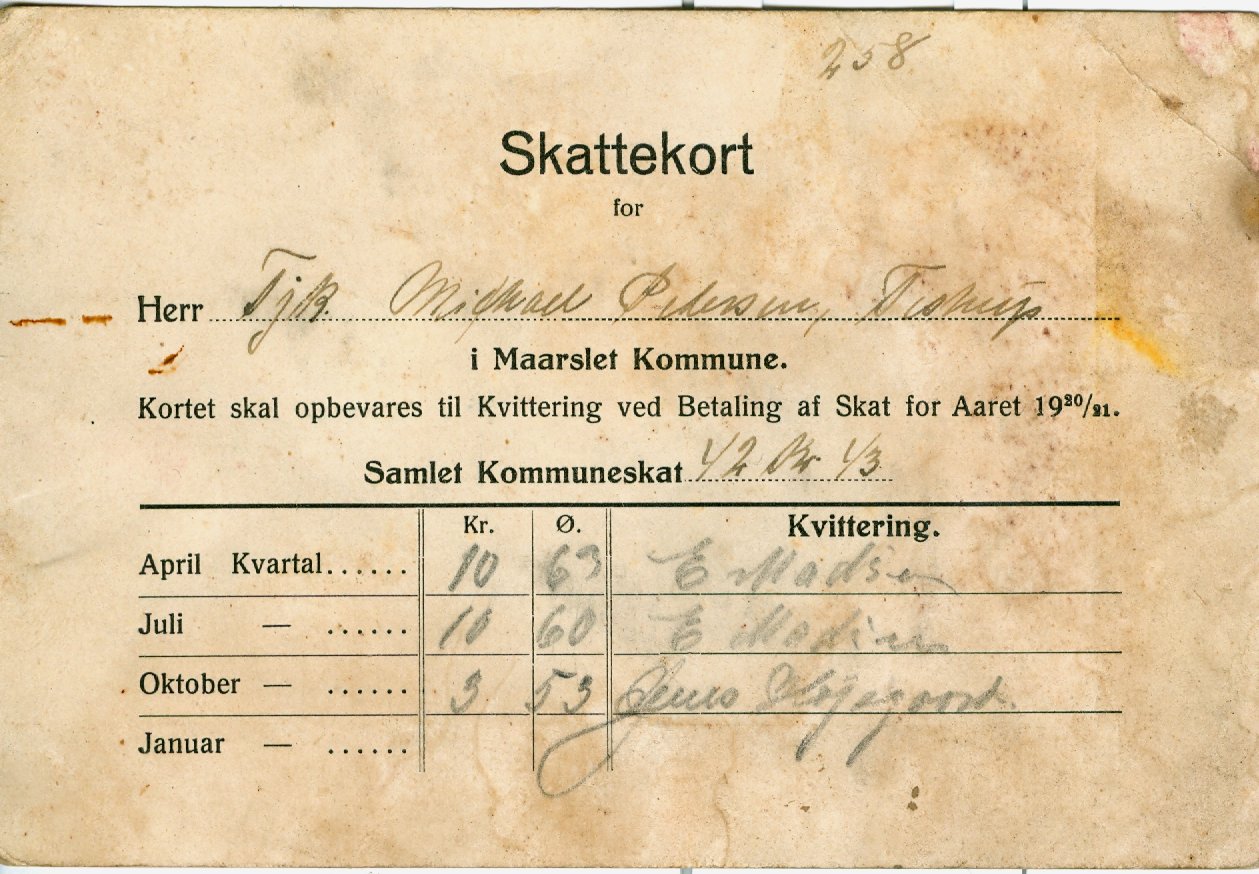 258
Skattekort
for
Herr Tjk. Michael Pedersen, Tiskup
i Maarslet Kommune.
Kortet skal opbevares til Kvittering ved Betaling af Skat for Aaret 1920/21.
Samlet Kommuneskat 42 Kr 43
Kr. Ø. Kvittering.
April Kvartal...... 10 63 E Madsen
Juli — ...... 10 60 E Madsen
Oktober — ...... 3 53 Jens
Januar — ......